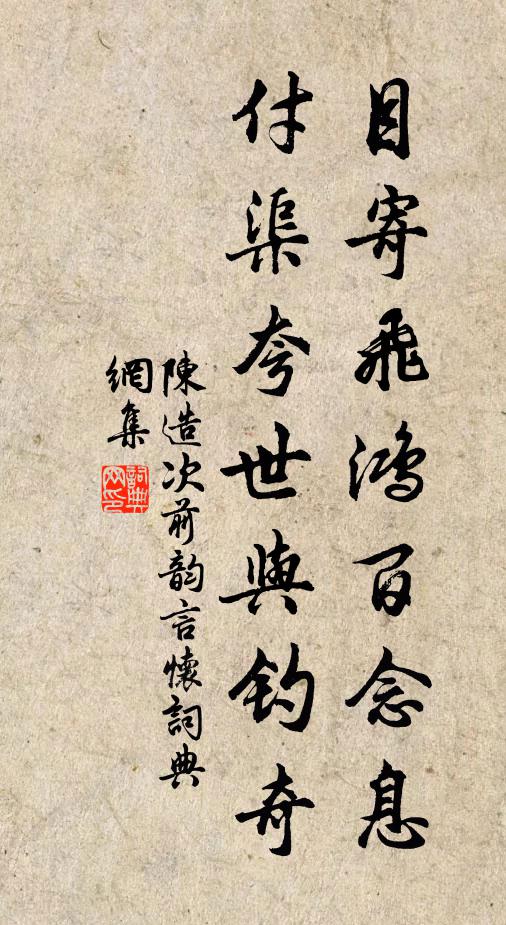 目寄飛鴻百念息
付渠夸世與釣奇
陳造次前韵言懷詞典
網集
詞典
网印